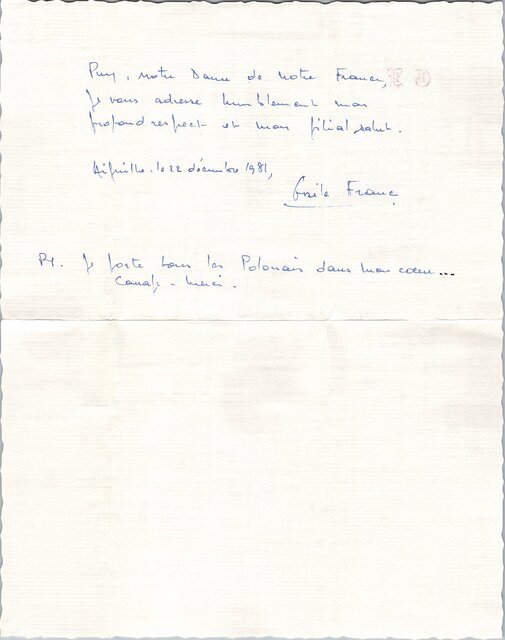 notre Dame de notre France,
Je vous adresse humblement mon
profond respect et mon filial salut.
le 22 décembre 1981,
France
PS. Je porte tous les Polonais dans mon cœur...
merci.